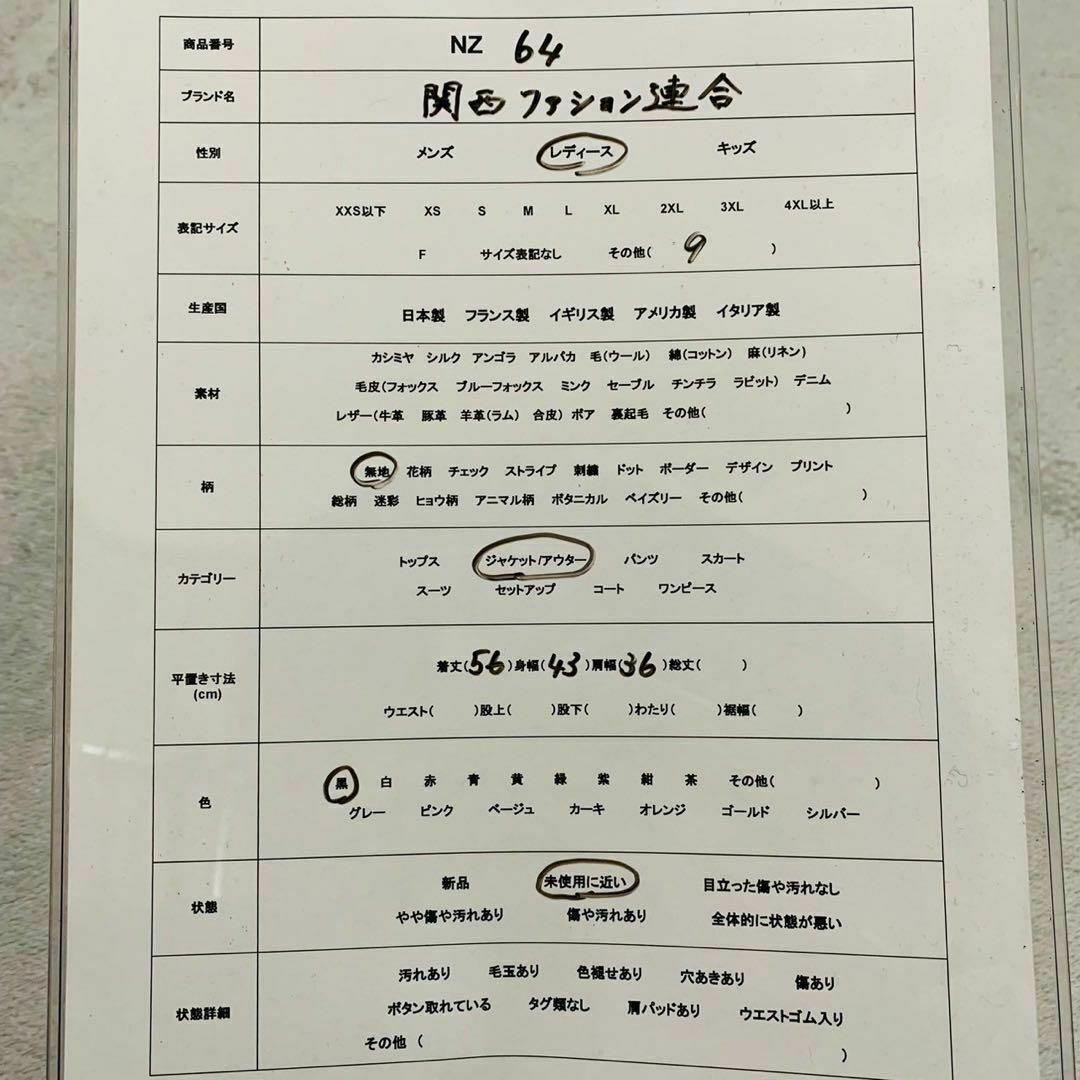 商品番号 NZ 64
ブランド名 関西ファション連合
性別 メンズ レディース キッズ
表記サイズ
XXS以下 XS S M L XL 2XL 3XL 4XL以上
F サイズ表記なし その他( 9 )
生産国 日本製 フランス製 イギリス製 アメリカ製 イタリア製
素材
カシミヤ シルク アンゴラ アルパカ 毛(ウール) 綿(コットン) 麻(リネン)
毛皮(フォックス ブルーフォックス ミンク セーブル チンチラ ラビット) デニム
レザー(牛革 豚革 羊革(ラム) 合皮) ボア 裏起毛 その他( )
柄
無地 花柄 チェック ストライプ 刺繍 ドット ボーダー デザイン プリント
総柄 迷彩 ヒョウ柄 アニマル柄 ボタニカル ペイズリー その他( )
カテゴリー
トップス ジャケット/アウター パンツ スカート
スーツ セットアップ コート ワンピース
平置き寸法
(cm)
着丈(56)身幅(43)肩幅(36)総丈( )
ウエスト( )股上( )股下( )わたり( )裾幅( )
色
黒 白 赤 青 黄 緑 紫 紺 茶 その他( )
グレー ピンク ベージュ カーキ オレンジ ゴールド シルバー
状態
新品 未使用に近い 目立った傷や汚れなし
やや傷や汚れあり 傷や汚れあり 全体的に状態が悪い
状態詳細
汚れあり 毛玉あり 色褪せあり 穴あきあり 傷あり
ボタン取れている タグ類なし 肩パッドあり ウエストゴム入り
その他 ( )